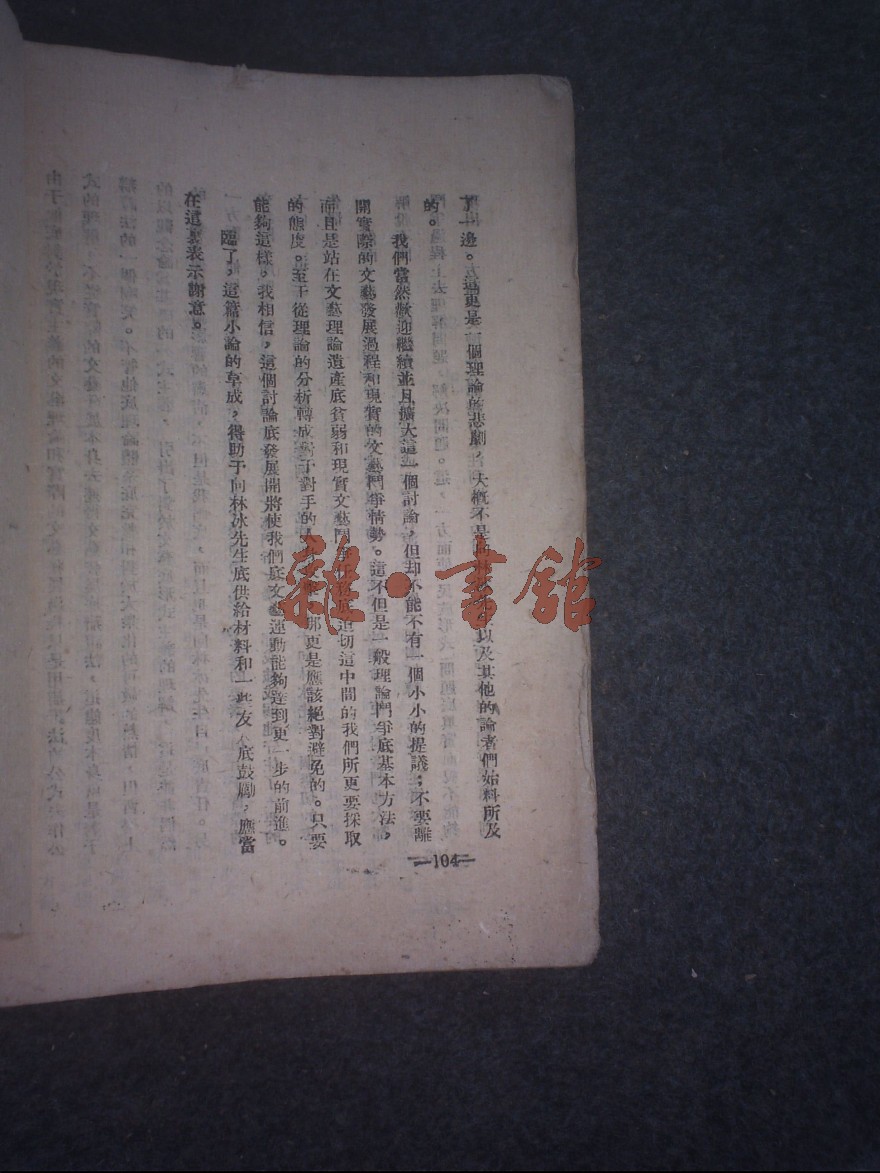 了一邊。這更是一個理論的悲劇，大概不是向林冰先生以及其他的論者們始料所及
的。
我們當然歡迎繼續並且擴大這一個討論，但却不能不有一個小小的提議；不要離
開實際的文藝發展過程和現實的文藝鬥爭情勢。這不但是一般理論鬥爭底基本方法，
而且是站在文藝理論遺產底貧弱和現實文藝鬥爭任務底迫切這中間的我們所更要採取
的態度。至于從理論的分析轉成對于對手的 那更是應該絕對避免的。只要
能夠這樣，我相信，這個討論底發展開將使我們底文藝運動能夠達到更一步的前進。
臨了，這篇小論的草成，得助于向林冰先生底供給材料和一些友人底鼓勵，應當
在這裏表示謝意。
—104—
雜·書館